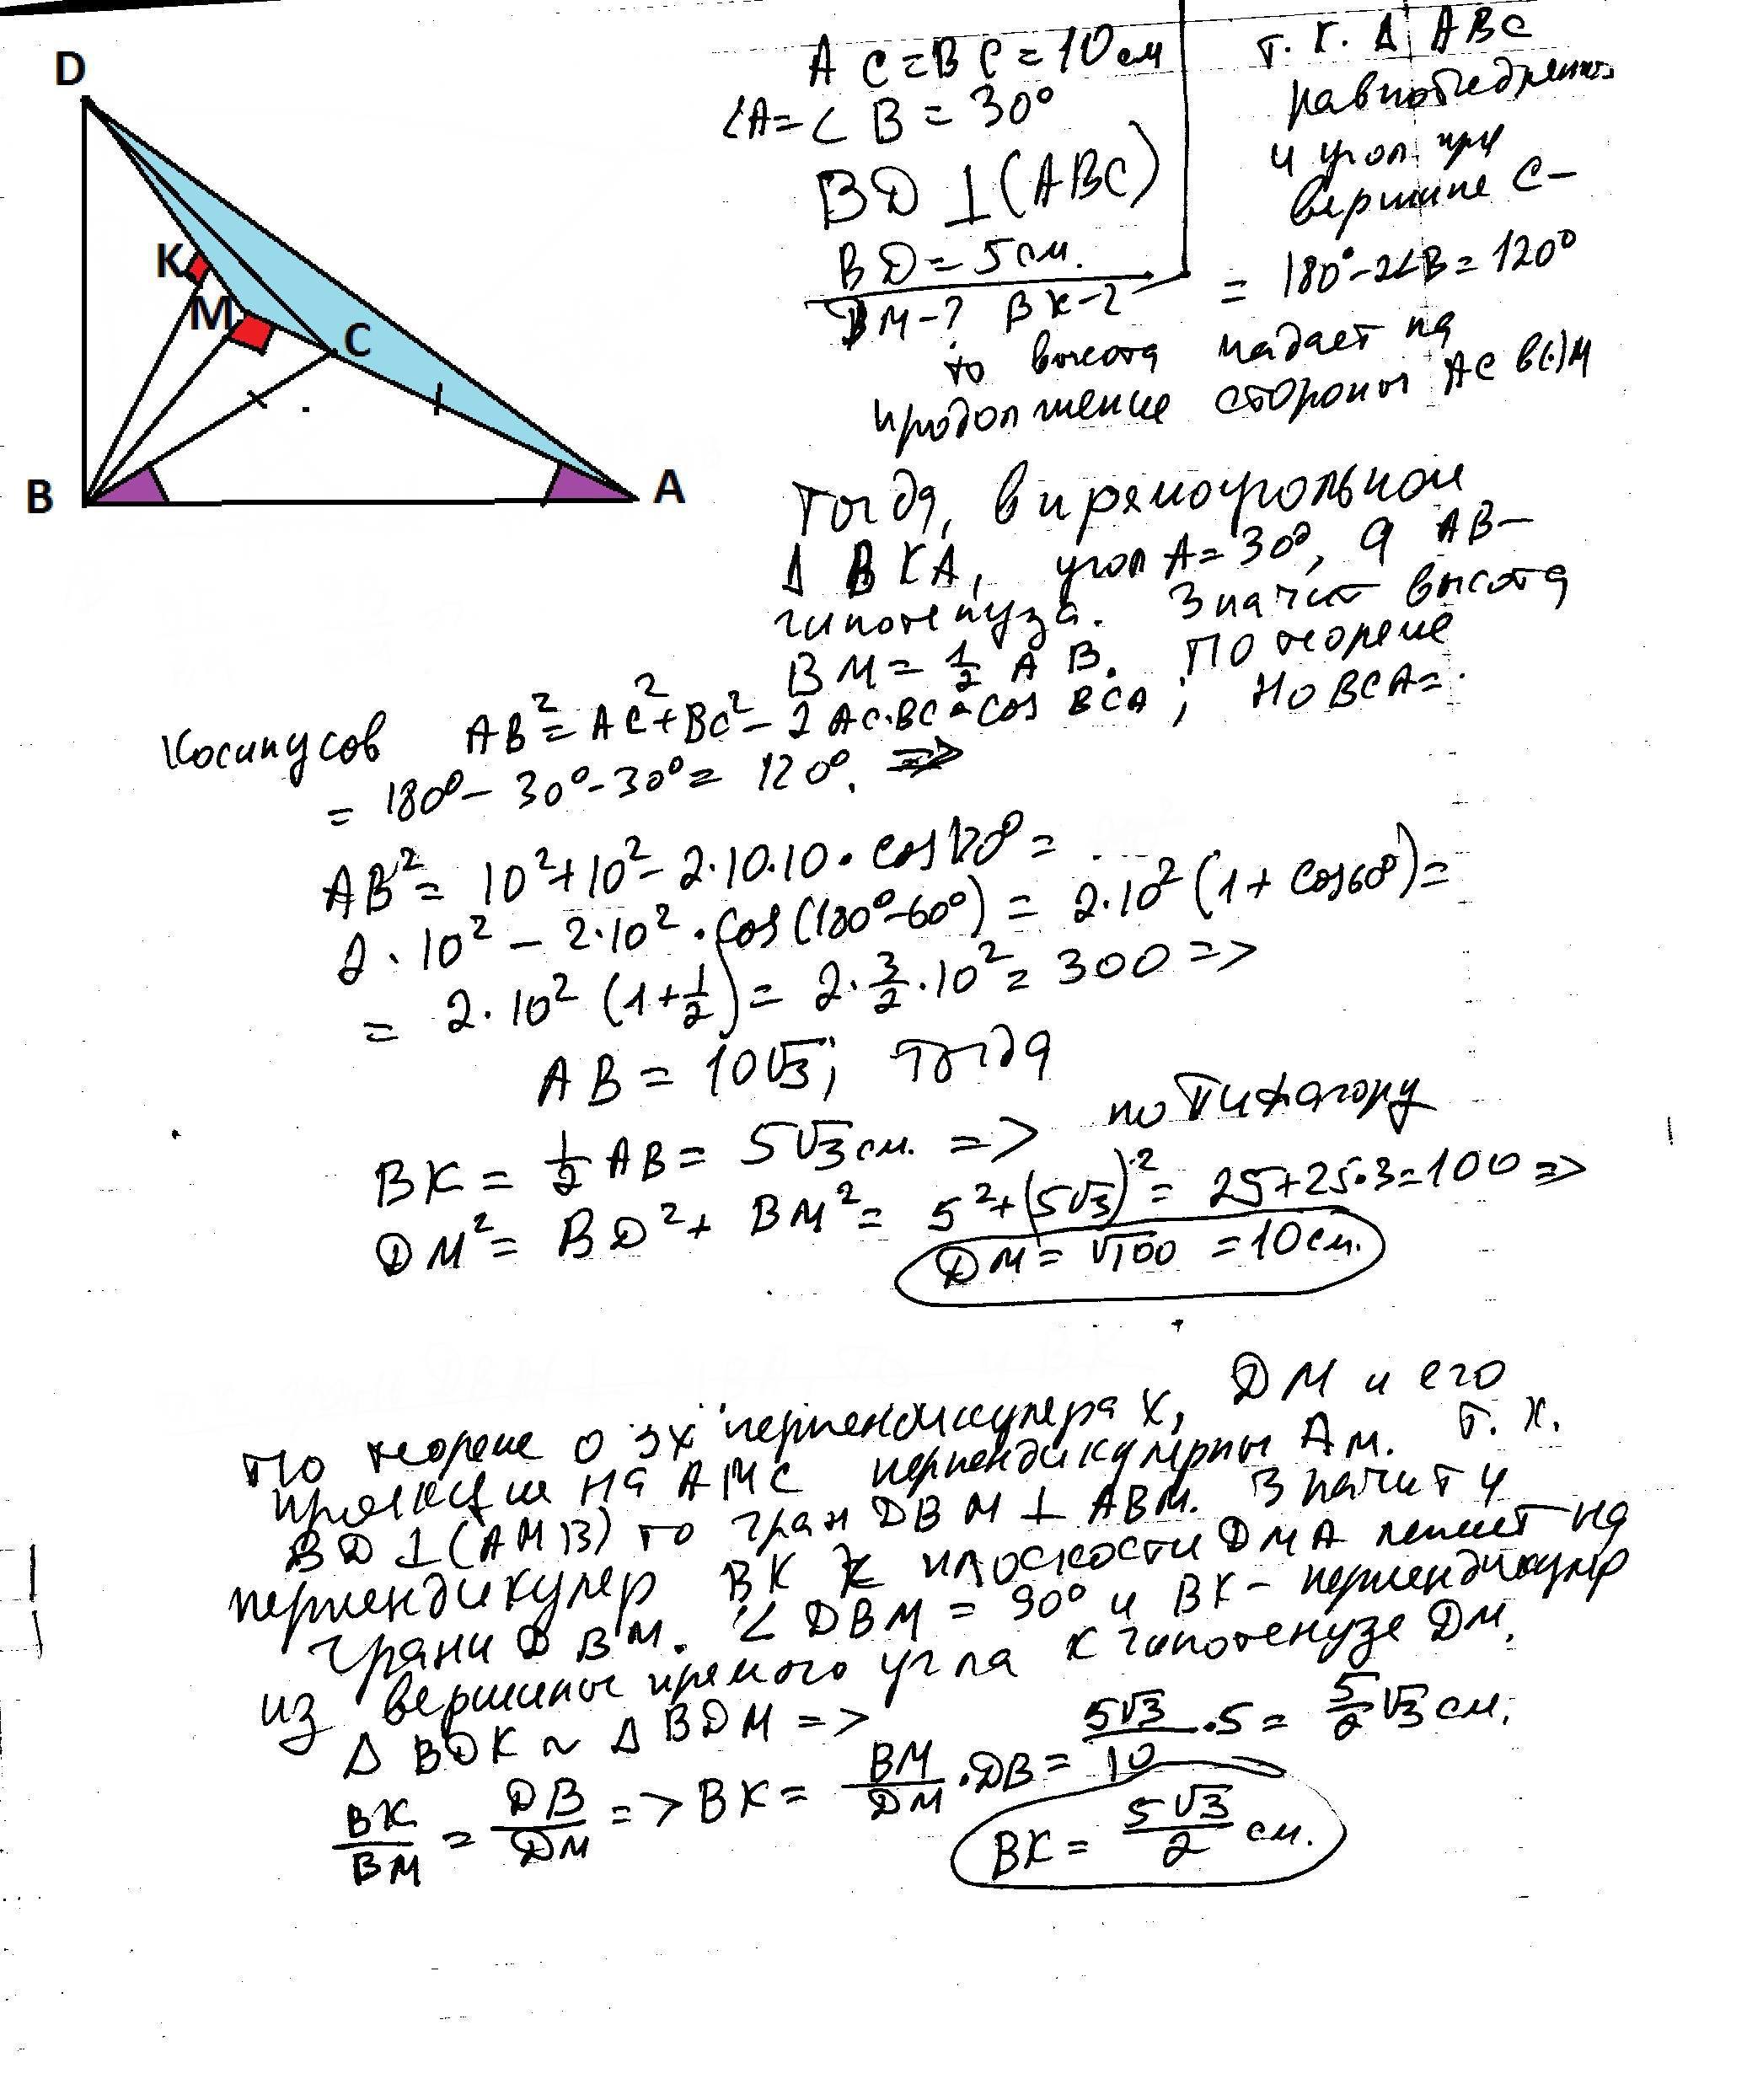 D
K
M
C
B
A
AC = BC = 10 см
∠A = ∠B = 30°
BD ⊥ (ABC)
BD = 5 см.
DM - ? BK - ?
т. к. Δ ABC
равнобедренный
и угол при
вершине C -
= 180° - 2∠B = 120°
то высота падает на
продолжение стороны AC в (·) M
Тогда, в прямоугольном
Δ BKA, угол A = 30°, а AB -
гипотенуза. Значит высота
BM = 1/2 AB. По теореме
косинусов AB² = AC² + BC² - 2 AC·BC·cos BCA ; но BCA =
= 180° - 30° - 30° = 120°. =>
AB² = 10² + 10² - 2·10·10·cos 120° =
2·10² - 2·10²·cos(180° - 60°) = 2·10²(1 + cos 60°) =
= 2·10²(1 + 1/2) = 2·3/2·10² = 300 =>
AB = 10√3; Тогда
BK = 1/2 AB = 5√3 см. => по Пифагору
DM² = BD² + BM² = 5² + (5√3)² = 25 + 25·3 = 100 =>
DM = √100 = 10 см.
По теореме о 3х перпендикулярах, DM и его
проекция на AMC перпендикулярны AM. Т. к.
BD ⊥ (AMB) то грань DBM ⊥ ABM. Значит и
перпендикуляр BK к плоскости DMA лежит на
грани DBM. ∠DBM = 90° и BK - перпендикуляр
из вершины прямого угла к гипотенузе DM.
Δ BDK ~ Δ BDM =>
BK/BM = DB/DM => BK = BM/DM · DB = 5√3/10 · 5 = 5/2 √3 см.
BK = 5√3/2 см.